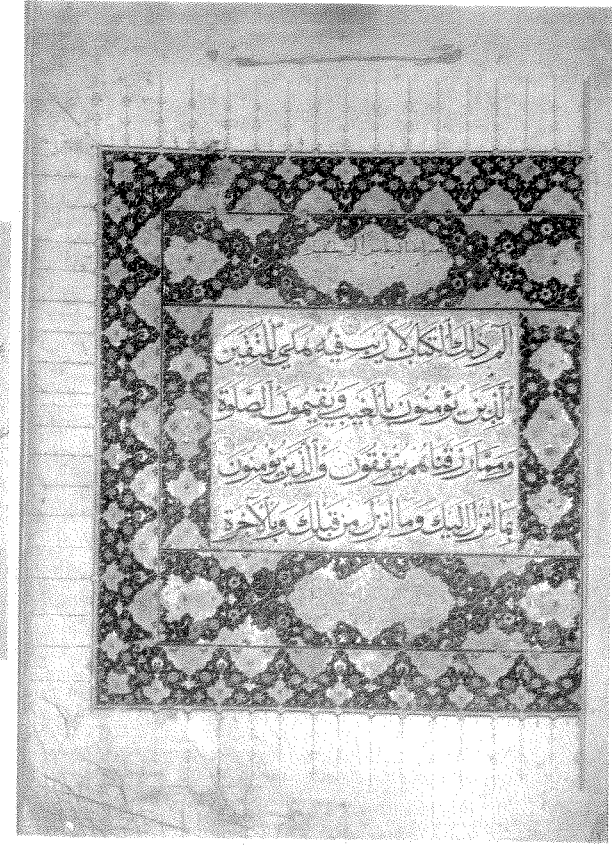 الم ذلك الكتاب لا ريب فيه هدى للمتقين
الذين يؤمنون بالغيب ويقيمون الصلوة
ومما رزقناهم ينفقون والذين يؤمنون
بما انزل اليك وما انزل من قبلك وبالآخرة